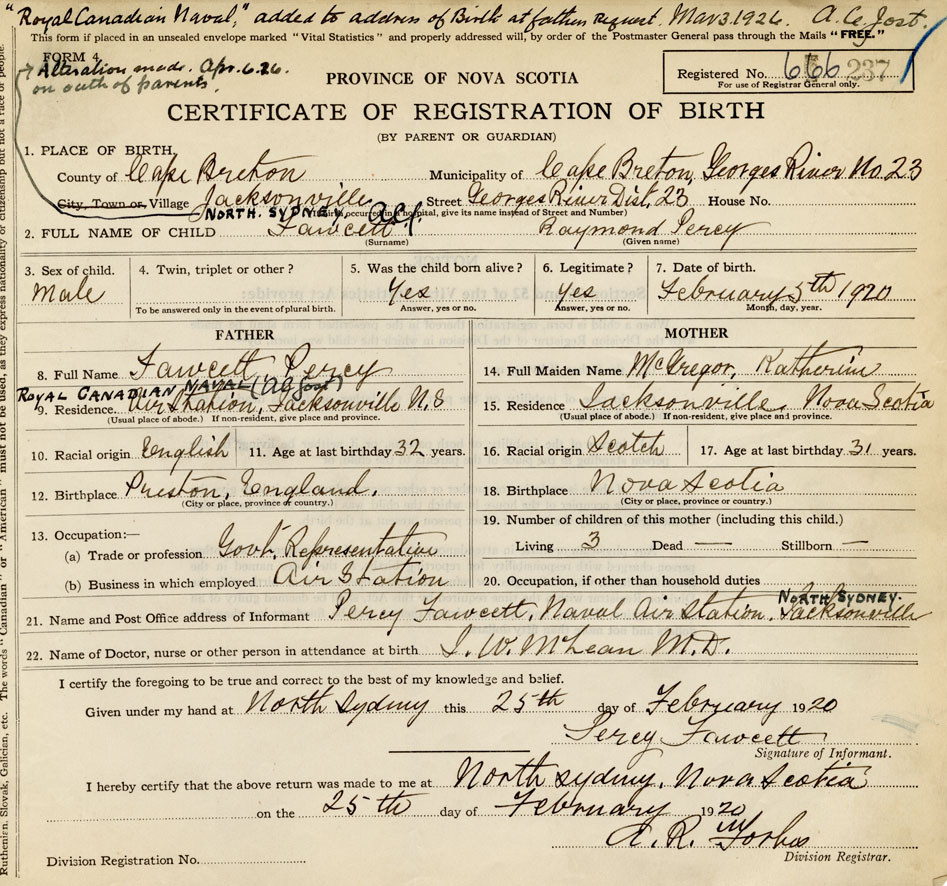 "Royal Canadian Naval," added to address of Birth at father request. Mar 3. 1926. A. C. Jost.
This form if placed in an unsealed envelope marked "Vital Statistics" and properly addressed will, by order of the Postmaster General pass through the Mails "FREE."
FORM 4
Alteration made. Apr. 6. 26.
on oath of parents.
PROVINCE OF NOVA SCOTIA
Registered No. 666 237
For use of Registrar General only.
CERTIFICATE OF REGISTRATION OF BIRTH
(BY PARENT OR GUARDIAN)
1. PLACE OF BIRTH,
County of Cape Breton Municipality of Cape Breton, Georges River No. 23
City, Town or Village Jacksonville Street Georges River Dist. 23 House No.
NORTH. SYDNEY. a.c.j.
(If birth occurred in a hospital, give its name instead of Street and Number)
2. FULL NAME OF CHILD Fawcett Raymond Percy
(Surname) (Given name)
3. Sex of child. 4. Twin, triplet or other? 5. Was the child born alive? 6. Legitimate? 7. Date of birth.
Male Yes Yes February 5th 1920
To be answered only in the event of plural birth. Answer, yes or no. Answer, yes or no. Month, day, year.
FATHER
8. Full Name Fawcett Percy
ROYAL CANADIAN NAVAL (AC Jost)
9. Residence. Air Station, Jacksonville N.S
(Usual place of abode.) If non-resident, give place and province.
10. Racial origin English 11. Age at last birthday 32 years.
12. Birthplace Preston, England.
(City or place, province or country.)
13. Occupation:—
(a) Trade or profession Govt. Representative
(b) Business in which employed Air Station
MOTHER
14. Full Maiden Name McGregor, Katherin
15. Residence Jacksonville, Nova Scotia
(Usual place of abode.) If non-resident, give place and province.
16. Racial origin Scotch 17. Age at last birthday 31 years.
18. Birthplace Nova Scotia
(City or place, province or country.)
19. Number of children of this mother (including this child.)
Living 3 Dead — Stillborn —
20. Occupation, if other than household duties
NORTH SYDNEY.
21. Name and Post Office address of Informant Percy Fawcett, Naval Air Station, Jacksonville
22. Name of Doctor, nurse or other person in attendance at birth J. W. McLean M.D.
I certify the foregoing to be true and correct to the best of my knowledge and belief.
Given under my hand at North Sydney this 25th day of February 1920
Percy Fawcett
Signature of Informant.
I hereby certify that the above return was made to me at North Sydney, Nova Scotia
on the 25th day of February 1920
A. R. Forbes
Division Registrar.
Division Registration No.
Ruthenien, Slovak, Galician, etc. The words "Canadian" or "American" must not be used, as they express nationality or citizenship but not a race of people.